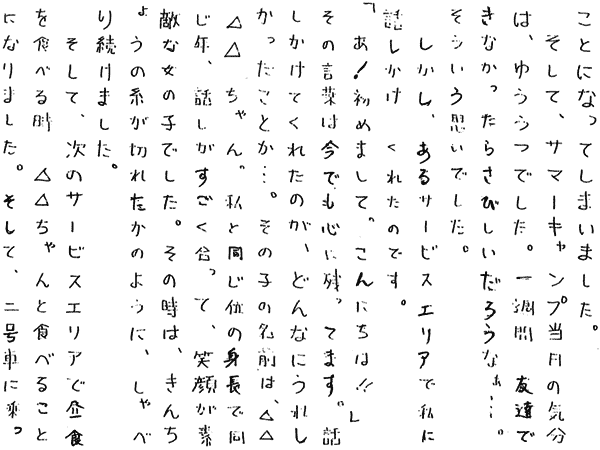 ことになってしまいました。
　そして、サマーキャンプ当日の気分
は、ゆううつでした。一週間　友達で
きなかったらさびしいだろうなぁ…。
そういう思いでした。
　しかし、あるサービスエリアで私に
話しかけ　くれたのです。
「あ！初めまして。こんにちは!!」
その言葉は今でも心に残ってます。話
しかけてくれたのが、どんなにうれし
かったことか…。その子の名前は、△△
△△ちゃん。私と同じ位の身長で同
じ年、話しがすごく合って、笑顔が素
敵な女の子でした。その時は、きんち
ょうの糸が切れたかのように、しゃべ
り続けました。
　そして、次のサービスエリアで昼食
を食べる時　△△ちゃんと食べること
になりました。そして、二号車に乗っ